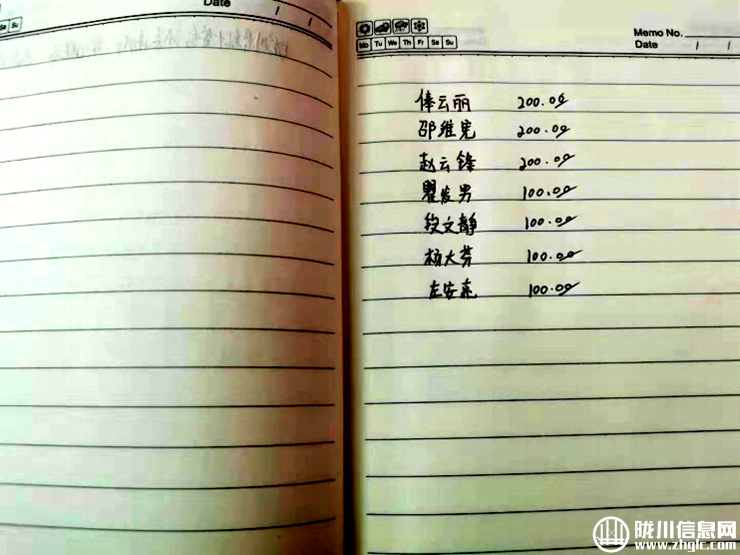 Sa Su
Date / /
Mo Tu We Th Fr Sa Su
Memo No.
Date / /
俸云丽 200.00
邵维宪 200.00
赵云锋 200.00
瞿发男 100.00
段文静 100.00
杨大芬 100.00
左安东 100.00
陇川信息网
www.zhglc.com